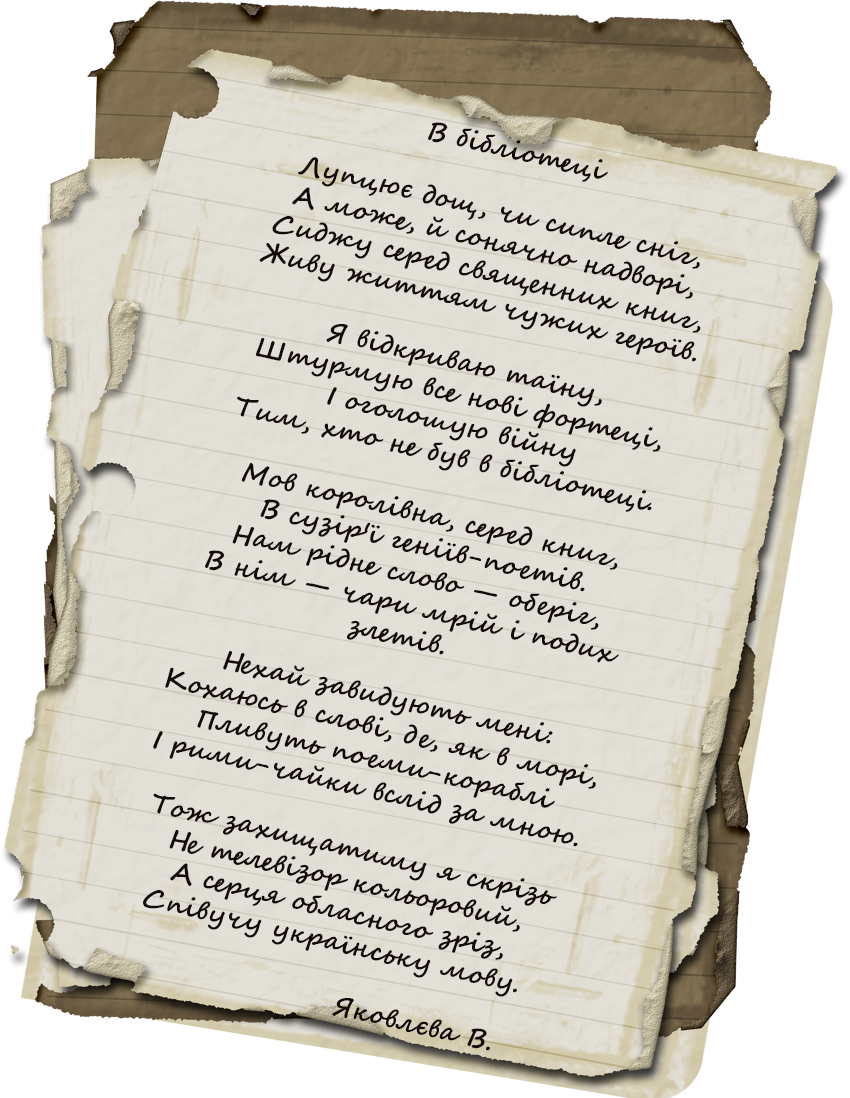 В бібліотеці
Лупцює дощ, чи сипле сніг,
А може, й сонячно надворі,
Сиджу серед священних книг,
Живу життям чужих героїв.
Я відкриваю таїну,
Штурмую все нові фортеці,
І оголошую війну
Тим, хто не був в бібліотеці.
Мов королівна, серед книг,
В сузір'ї геніїв-поетів.
Нам рідне слово — оберіг,
В нім — чари мрій і подих
злетів.
Нехай завидують мені:
Кохаюсь в слові, де, як в морі,
Пливуть поеми-кораблі
І рими-чайки вслід за мною.
Тож захищатиму я скрізь
Не телевізор кольоровий,
А серця обласного зріз,
Співучу українську мову.
Яковлєва В.